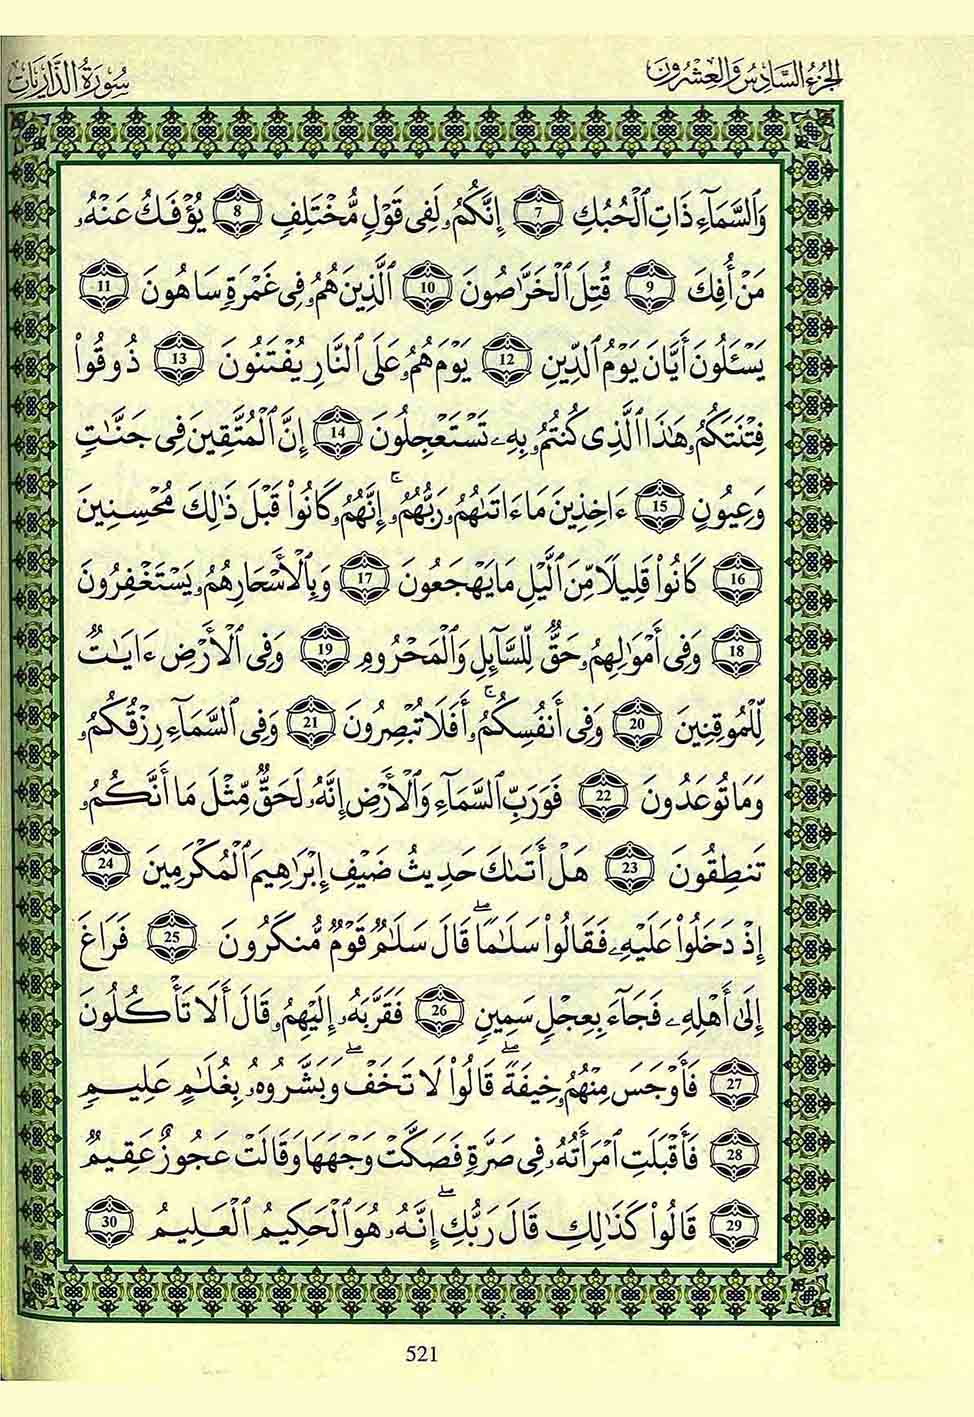 الجزء السادس والعشرون
سورة الذاريات
وَٱلسَّمَآءِ ذَاتِ ٱلْحُبُكِ 7 إِنَّكُمُۥ لَفِى قَوْلٍ مُّخْتَلِفٍ 8 يُؤْفَكُ عَنْهُۥ
مَنْ أُفِكَ 9 قُتِلَ ٱلْخَرَّٰصُونَ 10 ٱلَّذِينَ هُمُۥ فِى غَمْرَةٍ سَاهُونَ 11
يَسْـَٔلُونَ أَيَّانَ يَوْمُ ٱلدِّينِ 12 يَوْمَ هُمُۥ عَلَى ٱلنَّارِ يُفْتَنُونَ 13 ذُوقُوا۟
فِتْنَتَكُمُۥ هَٰذَا ٱلَّذِى كُنتُمُۥ بِهِۦ تَسْتَعْجِلُونَ 14 إِنَّ ٱلْمُتَّقِينَ فِى جَنَّٰتٍ
وَعِيُونٍ 15 ءَاخِذِينَ مَا ءَاتَىٰهُمُۥ رَبُّهُمُۥٓ ۚ إِنَّهُمُۥ كَانُوا۟ قَبْلَ ذَٰلِكَ مُحْسِنِينَ
16 كَانُوا۟ قَلِيلًا مِّنَ ٱلَّيْلِ مَا يَهْجَعُونَ 17 وَبِٱلْأَسْحَارِ هُمُۥ يَسْتَغْفِرُونَ
18 وَفِى أَمْوَٰلِهِمُۥ حَقٌّ لِّلسَّآئِلِ وَٱلْمَحْرُومِ 19 وَفِى ٱلْأَرْضِ ءَايَٰتٌ
لِّلْمُوقِنِينَ 20 وَفِى أَنفُسِكُمُۥ ۚ أَفَلَا تُبْصِرُونَ 21 وَفِى ٱلسَّمَآءِ رِزْقُكُمُۥ
وَمَا تُوعَدُونَ 22 فَوَرَبِّ ٱلسَّمَآءِ وَٱلْأَرْضِ إِنَّهُۥ لَحَقٌّ مِّثْلَ مَا أَنَّكُمُۥ
تَنطِقُونَ 23 هَلْ أَتَىٰكَ حَدِيثُ ضَيْفِ إِبْرَٰهِيمَ ٱلْمُكْرَمِينَ 24
إِذْ دَخَلُوا۟ عَلَيْهِۦ فَقَالُوا۟ سَلَٰمًا ۖ قَالَ سَلَٰمٌ قَوْمٌ مُّنكَرُونَ 25 فَرَاغَ
إِلَىٰ أَهْلِهِۦ فَجَآءَ بِعِجْلٍ سَمِينٍ 26 فَقَرَّبَهُۥ إِلَيْهِمُۥ قَالَ أَلَا تَأْكُلُونَ
27 فَأَوْجَسَ مِنْهُمُۥ خِيفَةً ۖ قَالُوا۟ لَا تَخَفْ ۖ وَبَشَّرُوهُۥ بِغُلَٰمٍ عَلِيمٍ
28 فَأَقْبَلَتِ ٱمْرَأَتُهُۥ فِى صَرَّةٍ فَصَكَّتْ وَجْهَهَا وَقَالَتْ عَجُوزٌ عَقِيمٌ
29 قَالُوا۟ كَذَٰلِكِ قَالَ رَبُّكِ ۖ إِنَّهُۥ هُوَ ٱلْحَكِيمُ ٱلْعَلِيمُ 30
521